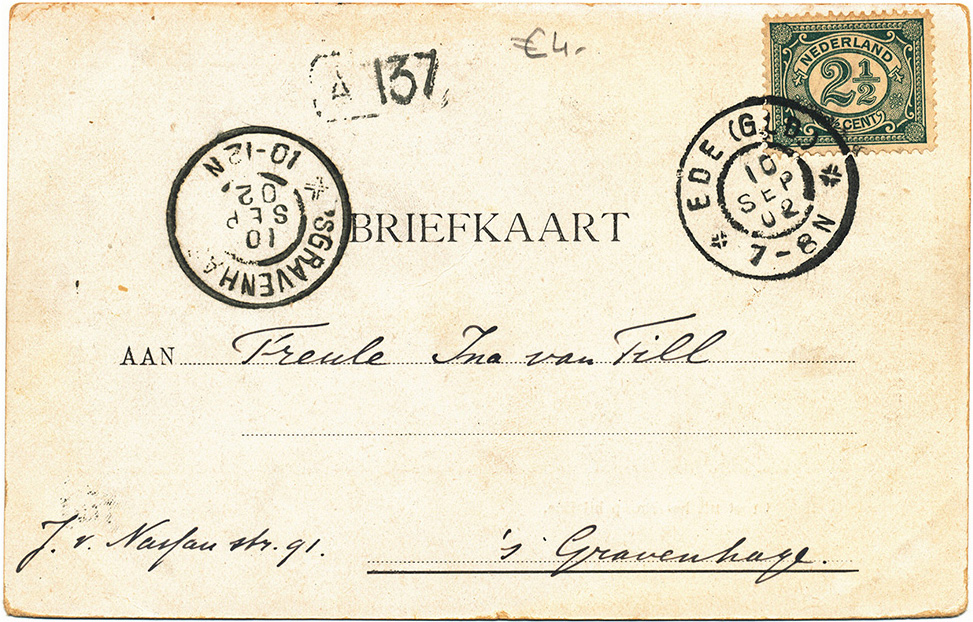 €4.-
A 137
NEDERLAND
2½
2½ CENT
EDE (GLD.)
10
SEP
02
7-8N
'SGRAVENHA
10
SEP
02
10-12N
BRIEFKAART
AAN Freule Ina van Till
J. v. Nassau str. 91. 's Gravenhage.